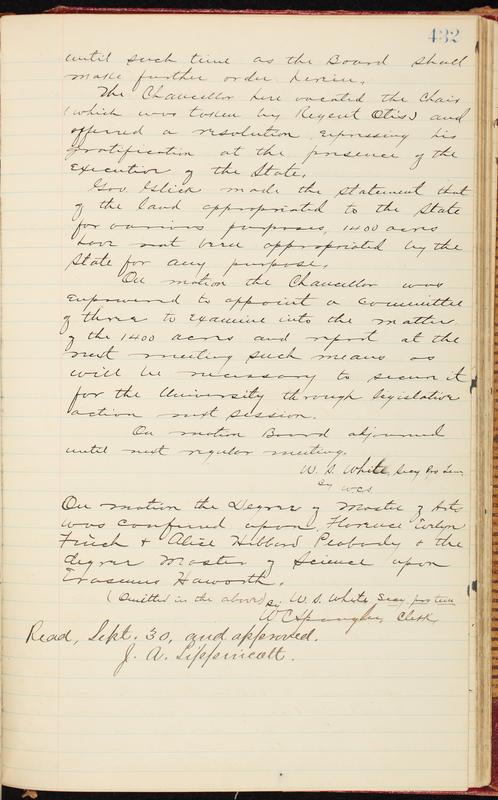 432
until such time as the Board shall
make further order herein.
The Chancellor here vacated the Chair
(which was taken by Regent Otis) and
offered a resolution expressing his
gratification at the presence of the
Executive of the State.
Gov. Glick made the statement that
of the land appropriated to the State
for various purposes, 1400 acres
have not been appropriated by the
State for any purpose.
On motion the Chancellor was
empowered to appoint a Committee
of three to examine into the matter
of the 1400 acres and report at the
next meeting such means as
will be necessary to secure it
for the University through legislative
action next session.
On motion Board adjourned
until next regular meeting.
W. S. White, Secy Pro Tem
By WCS
On motion the Degree of Master of Arts
was conferred upon Florence Evelyn
Finch & Alice Hibbard Peabody & the
degree Master of Science upon
Erasmus Haworth.
(Omitted in the above) W. S. White Secy pro tem
By W C Spangler Clerk
Read, Sept. 30, and approved.
J. A. Lippincott.